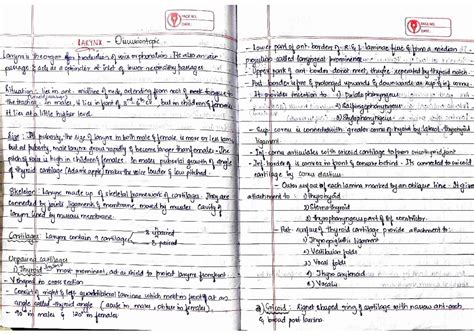 LARYNX - Discussiontopic
Larynx is the organ for production of voice or phonation. It's also an air
passage & acts as a sphincter at inlet of lower respiratory passages.
Situation : lies in ant. midline of neck, extending from root of tongue to
the trachea. In males, it lies in front of 3rd-6th CV but in children & females
it lies at a little higher level
Size : At puberty, the size of larynx in both male & female is more or less
but at puberty, male larynx grows rapidly & become larger than females. The
pitch of voice is high in children & females. In males pubertal growth of angle
of thyroid cartilage (Adam's apple) makes the voice louder & low pitched.
Skeleton : Larynx made up of skeletal framework of cartilages. They are
connected by joints, ligaments & membrane, moved by muscles. Cavity of
larynx lined by mucous membrane.
Cartilages : Larynx contain 9 cartilages
3 unpaired
3 paired
Unpaired cartilages
1) Thyroid : most prominent, act as shield to protect larynx from front
V shaped in cross section
Consist of right & left quadrilateral laminae which meet in front at an
angle called thyroid angle (acute in males & obtuse in females)
90° in males & 120° in females
PAGE NO.
DATE
- Lower part of ant. border of R & L laminae fuse & form a median
projection called laryngeal prominence
- Upper part of ant. border do not meet, they're separated by thyroid notch.
- Post. border free & prolonged upwards & downwards as sup & inf cornu.
- This post. border give insertion to 1) Palatopharyngeus
2) Salpingopharyngeus
3) Stylopharyngeus
- Sup. cornu is connected with greater cornu of hyoid by lateral thyrohyoid
ligament
- Inf. cornu articulates with cricoid cartilage to form cricothyroid joint
- Inf. border is convex in front & concave behind. It's connected to cricoid
cartilage by conus elasticus
- Outer surface of each lamina marked by an oblique line. It gives
attachment to : 1) Thyrohyoid
2) Sternothyroid
3) Thyropharyngeus part of inf. constrictor
- Post. surface of thyroid cartilage provide attachment to :
1) Thyroepiglottic ligament
2) Vestibular folds
3) Vocal folds
4) Thyroarytenoid
5) Vocalis
2) Cricoid : Signet shaped ring of cartilage with narrow ant. arch
& broad post. lamina